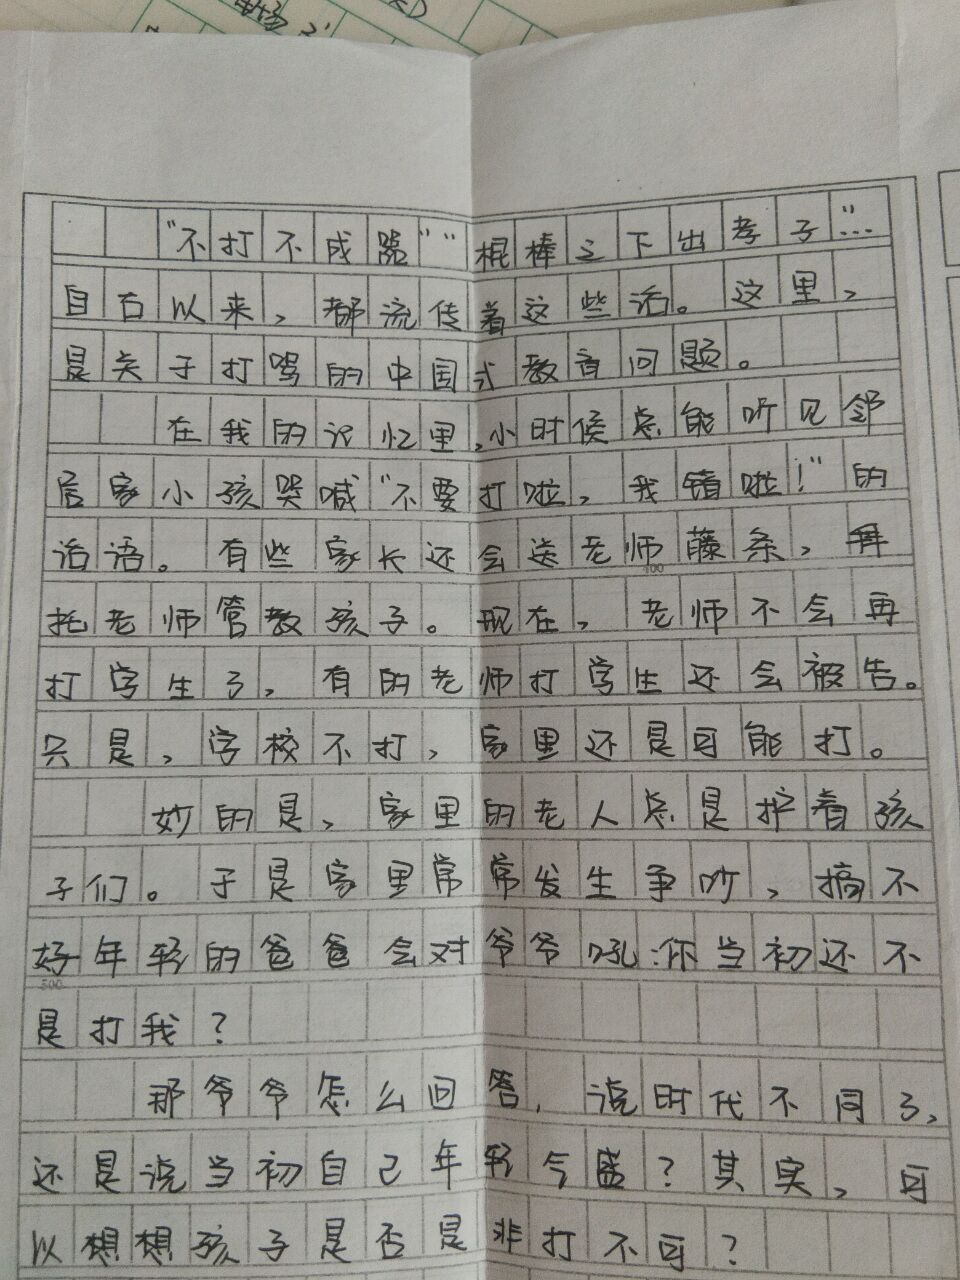 "不打不成器""棍棒之下出孝子"…
自古以来，都流传着这些话。这里，
是关于打骂的中国式教育问题。
在我的记忆里，小时候总能听见邻
居家小孩哭喊"不要打啦，我错啦！"的
话语。有些家长还会送老师藤条，拜
托老师管教孩子。现在，老师不会再
打学生了，有的老师打学生还会被告。
只是，学校不打，家里还是可能打。
妙的是，家里的老人总是护着孩
子们。于是家里常常发生争吵，搞不
好年轻的爸爸会对爷爷吼:你当初还不
是打我？
那爷爷怎么回答，说时代不同了，
还是说当初自己年轻气盛？其实，可
以想想孩子是否是非打不可？
400
500